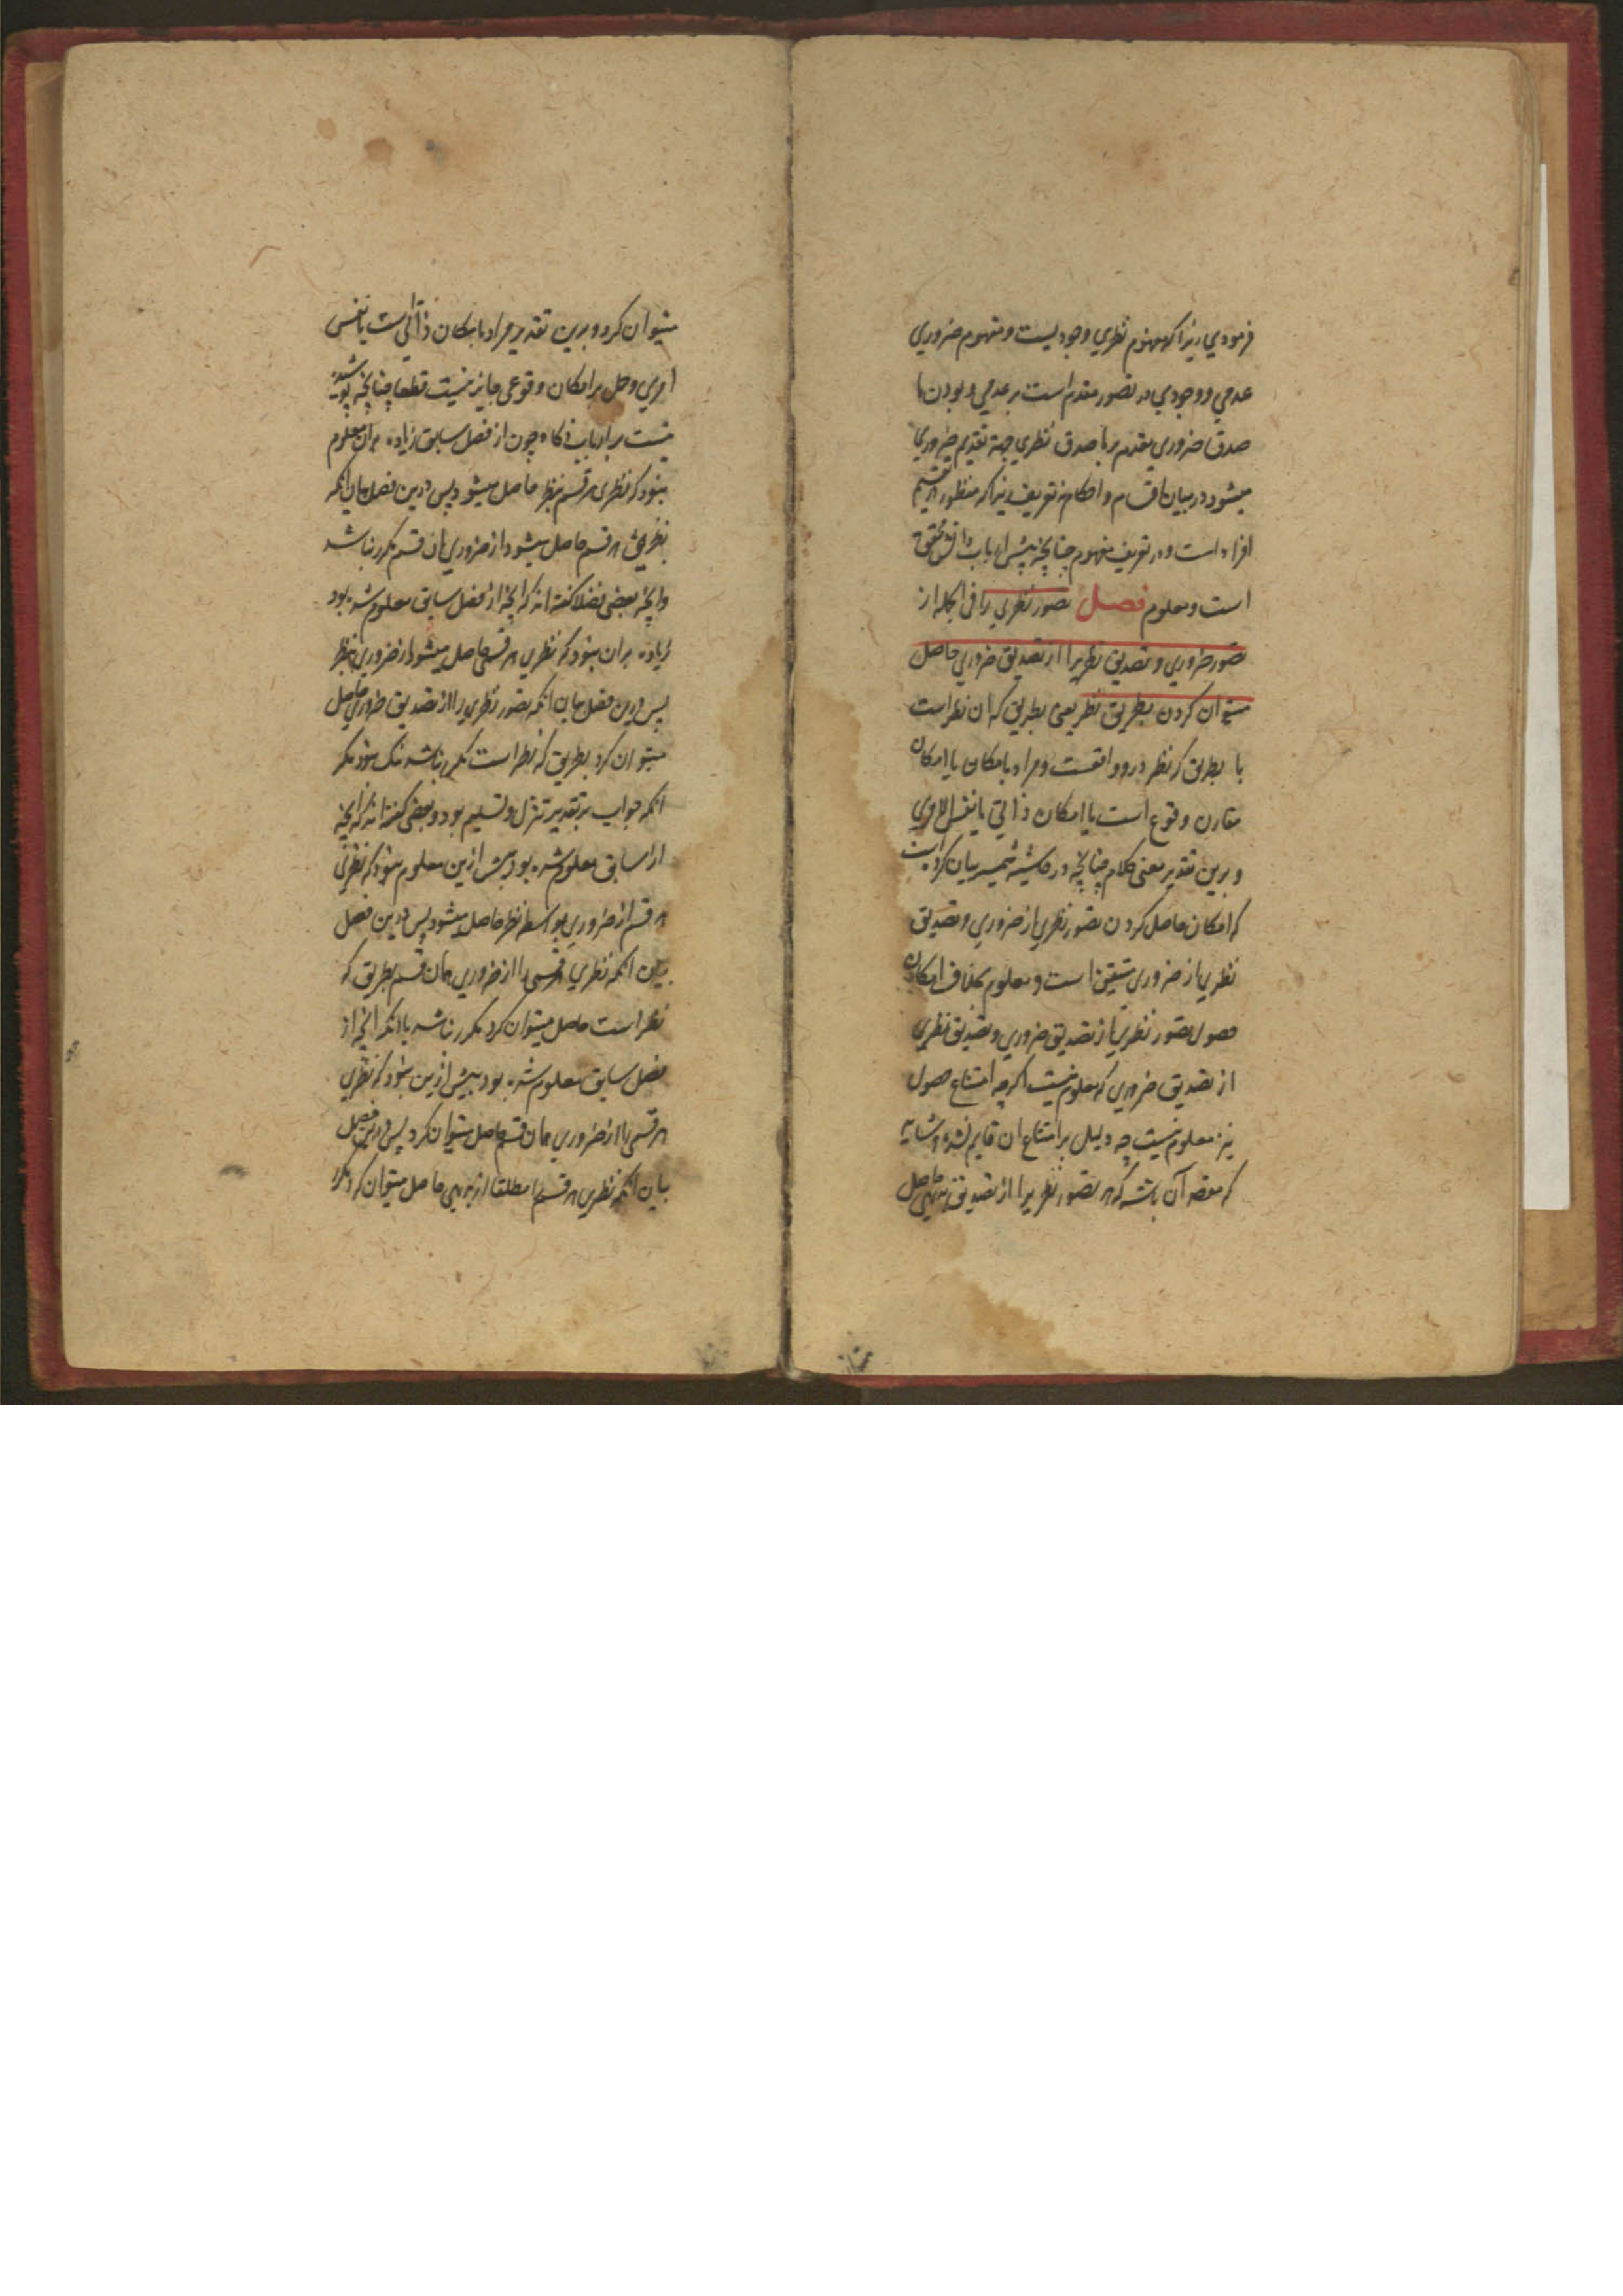 فرمودی زیرا که مفهوم نظری وجودیست و مفهوم ضروری
عدمی و وجودی در تصور مقدم است بر عدمی و بودن ما
صدق ضروری مقدم بر ما صدق نظری جهة تقدیم ضروری
میشود در بیان اقسام و احکام نه تعریف زیرا که منظور در تقسیم
افراد است و در تعریف مفهوم چنانچه پیش ارباب دانش محقق
است و معلوم فصل تصور نظری را فی الجمله از
تصور ضروری و تصدیق نظریرا از تصدیق ضروری حاصل
میتوان کردن بطریق نظر یعنی بطریق که ان نظر است
یا بطریق که نظر درو واقعست و مراد بامکان یا امکان
مقارن وقوع است یا امکان ذاتی یا نفس الامری
و برین تقدیر معنی کلام چنانچه در حاشیه شمسیه بیان کرده است
که امکان حاصل کردن تصور نظری از ضروری و تصدیق
نظری از ضروری متیقن است و معلوم بخلاف امکان
حصول تصور نظری از تصدیق ضروری و تصدیق نظری
از تصدیق ضروری که معلوم نیست اگرچه امتناع حصول
نیز معلوم نیست چه دلیل بر امتناع ان قایم نشده و شاید
که مقصد آن باشد که هر تصور نظریرا از تصدیق بدیهی حاصل
میتوان کرد و برین تقدیر مراد بامکان ذاتی است یا نفس
امری و حمل بر امکان وقوعی جایز نیست قطعا چنانچه پوشیده
نیست بر ارباب ذکاء چون از فصل سابق زیاده بران معلوم
نبود که نظری هر قسم بنظر حاصل میشود پس درین فصل بیان انکه
نظری هر قسم حاصل میشود از ضروری ان قسم مکرر نباشد
و آنچه بعضی فضلا گفته اند که آنچه از فصل سابق معلوم شده بود
زیاده بران نبود که نظری هر قسم حاصل میشود از ضروری بنظر
پس درین فصل بیان انکه تصور نظری را از تصدیق ضروری حاصل
میتوان کرد بطریق که نظر است مکرر نباشد نیک نبود مگر
انکه جواب بر تقدیر تنزل و تسلیم بود و بعضی گفته اند که آنچه
از سابق معلوم شده بود بیش ازین معلوم نبود که نظری
هر قسم از ضروری بواسطه نظر حاصل میشود پس درین فصل
بیان انکه نظری هر قسمی را از ضروری همان قسم بطریق که
نظر است حاصل میتوان کرد مکرر نباشد با انکه آنچه از
فصل سابق معلوم شده بود بیش ازین نبود که نظری
هر قسمی را از ضروری همان قسم حاصل میتوان کرد پس درین فصل
بیان انکه نظری هر قسم را مطلقا از بدیهی حاصل میتوان کرد مکرر